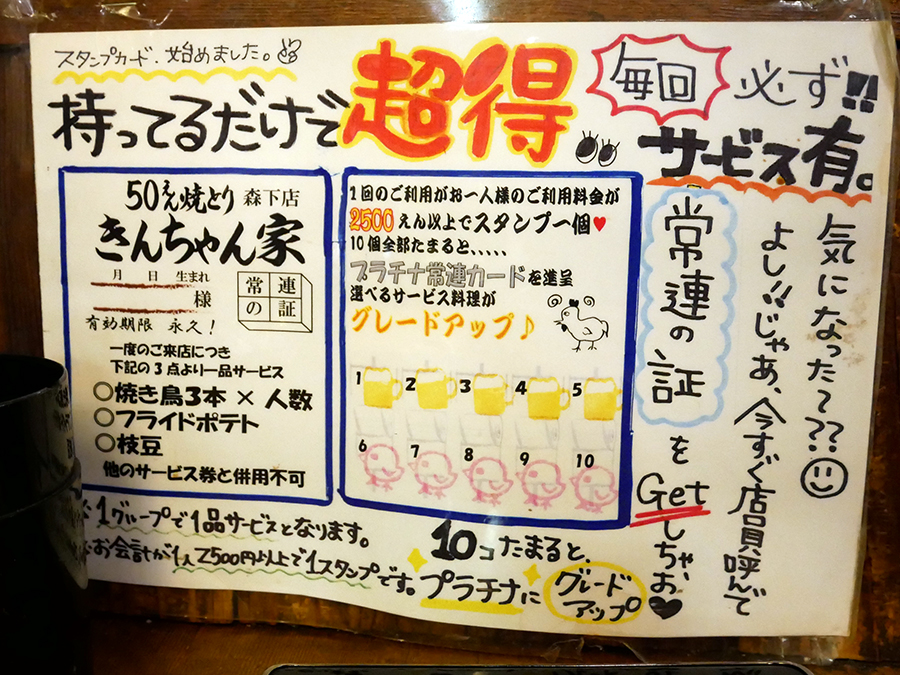 スタンプカード、始めました。
持ってるだけで超得
毎回必ず!!
サービス有。
50えん焼とり 森下店
きんちゃん家
月 日 生まれ
様
常連の証
有効期限 永久!
一度のご来店につき
下記の3点より一品サービス
○焼き鳥3本×人数
○フライドポテト
○枝豆
他のサービス券と併用不可
1回のご利用がお一人様のご利用料金が
2500えん以上でスタンプ一個♥
10個全部たまると、、、、、
プラチナ常連カードを進呈
選べるサービス料理が
グレードアップ♪
1 2 3 4 5
6 7 8 9 10
気になったて???
よし!!じゃあ、今すぐ店員呼んで
常連の証をGetしちゃお♥
1グループで1品サービスとなります。
お会計が1人2500円以上で1スタンプです。
10コたまると、
プラチナに
グレードアップ